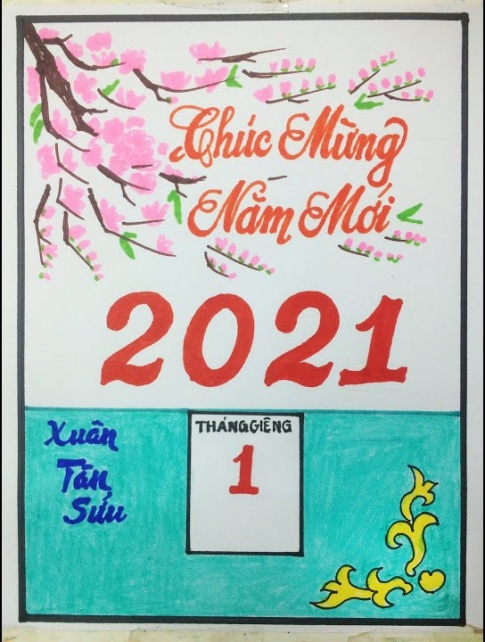 Chúc Mừng
Năm Mới
2021
Xuân
Tân
Sửu
THÁNG GIÊNG
1